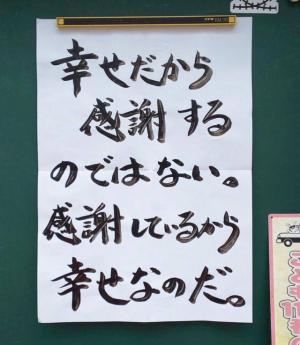 幸せだから
感謝する
のではない。
感謝しているから
幸せなのだ。